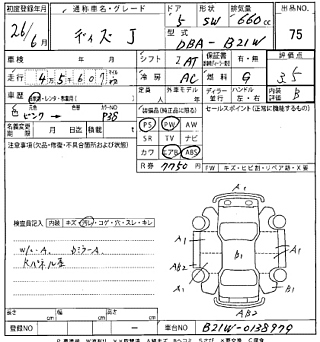 初度登録年月 通称車名・グレード ドア 形状 排気量 出品No.
26/6月 デイズ J 5 SW 660cc 75
型式 DBA-B21W
車検 年 月 シフト 2 AT 保証書 有・無 評価点
走行 45607 冷房 AC 燃料 G 3.5
車歴 自家用・レンタ・教習車( ) 定員 外車モデル ディーラー 並行 ハンドル 左・右 内装評価 B
色 ピンク→ カラーNo P38 装備品(純正品に限る) セールスポイント(正常に機能するもの)
名義変更期限 月 日迄 積載 t PS PW AW
SR TV ナビ
カワ エアB ABS
注意事項(欠品・修復・不具合箇所および状態) R券 7750円 FW キズ・ヒビ割・リペア跡・X要
検査員記入 内装 キズ・汚レ・コゲ・穴・スレ・キレ
W/ス-A カラーA
Rパネル歪
A1
A1 A1
B1 B1
AB2 A1
AB2
長さ cm 幅 cm 高さ cm
登録No 車台No B21W-0138979